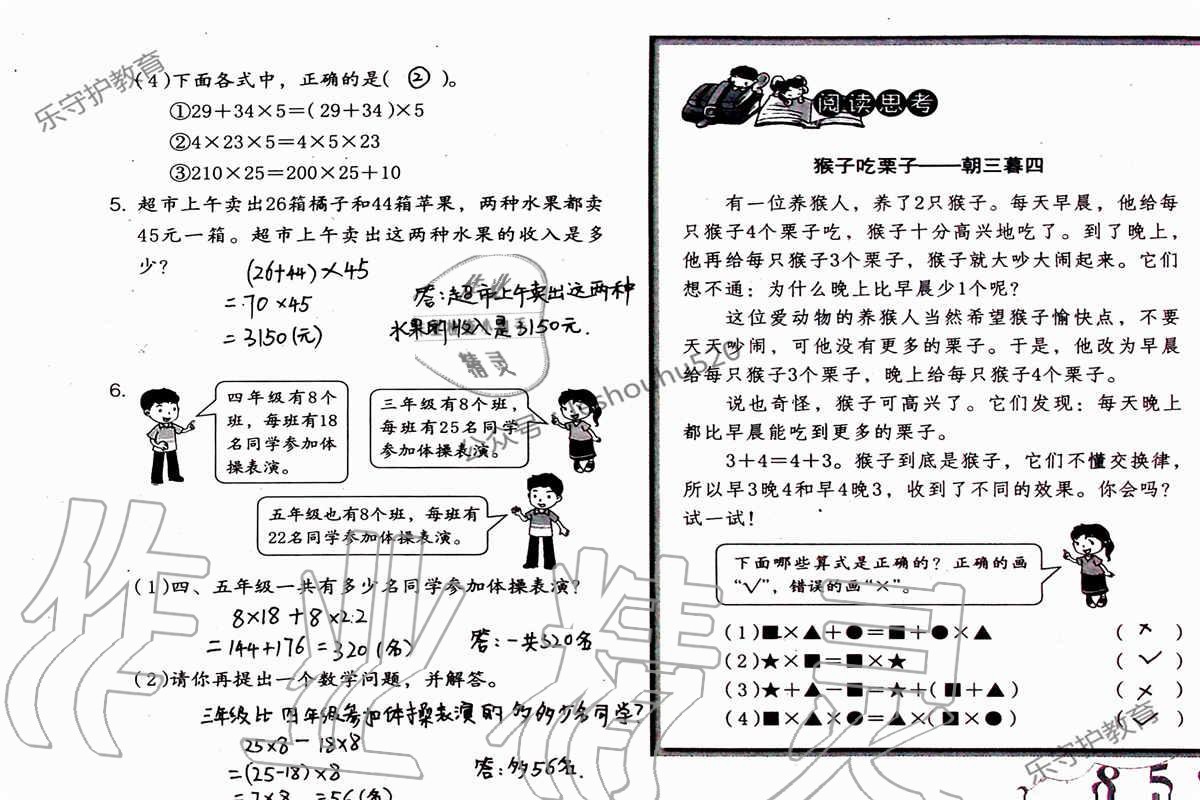 (4)下面各式中，正确的是( ② )。
①29＋34×5＝(29＋34)×5
②4×23×5＝4×5×23
③210×25＝200×25＋10
5. 超市上午卖出26箱橘子和44箱苹果，两种水果都卖
45元一箱。超市上午卖出这两种水果的收入是多
少?
(26+44)×45
=70×45
=3150(元)
答:超市上午卖出这两种
水果的收入是3150元.
6.
四年级有8个
班，每班有18
名同学参加体
操表演。
三年级有8个班，
每班有25名同学
参加体操表演。
五年级也有8个班，每班有
22名同学参加体操表演。
(1)四、五年级一共有多少名同学参加体操表演?
8×18+8×22
=144+176=320(名)
答:一共320名
(2)请你再提出一个数学问题，并解答。
三年级比四年级参加体操表演的多多少名同学?
25×8-18×8
=(25-18)×8
=7×8 =56(名)
答:多56名.
阅读思考
猴子吃栗子——朝三暮四
有一位养猴人，养了2只猴子。每天早晨，他给每
只猴子4个栗子吃，猴子十分高兴地吃了。到了晚上，
他再给每只猴子3个栗子，猴子就大吵大闹起来。它们
想不通：为什么晚上比早晨少1个呢?
这位爱动物的养猴人当然希望猴子愉快点，不要
天天吵闹，可他没有更多的栗子。于是，他改为早晨
给每只猴子3个栗子，晚上给每只猴子4个栗子。
说也奇怪，猴子可高兴了。它们发现：每天晚上
都比早晨能吃到更多的栗子。
3+4=4+3。猴子到底是猴子，它们不懂交换律，
所以早3晚4和早4晚3，收到了不同的效果。你会吗?
试一试!
下面哪些算式是正确的? 正确的画
“√”，错误的画“×”。
(1)■×▲＋●＝■＋●×▲ ( × )
(2)★×■＝■×★ ( √ )
(3)★＋▲－■＝★＋(■＋▲) ( × )
(4)■×▲×●＝▲×(■×●) ( √ )
乐守护教育
作业精灵
作业
精灵
乐守护教育
8 5